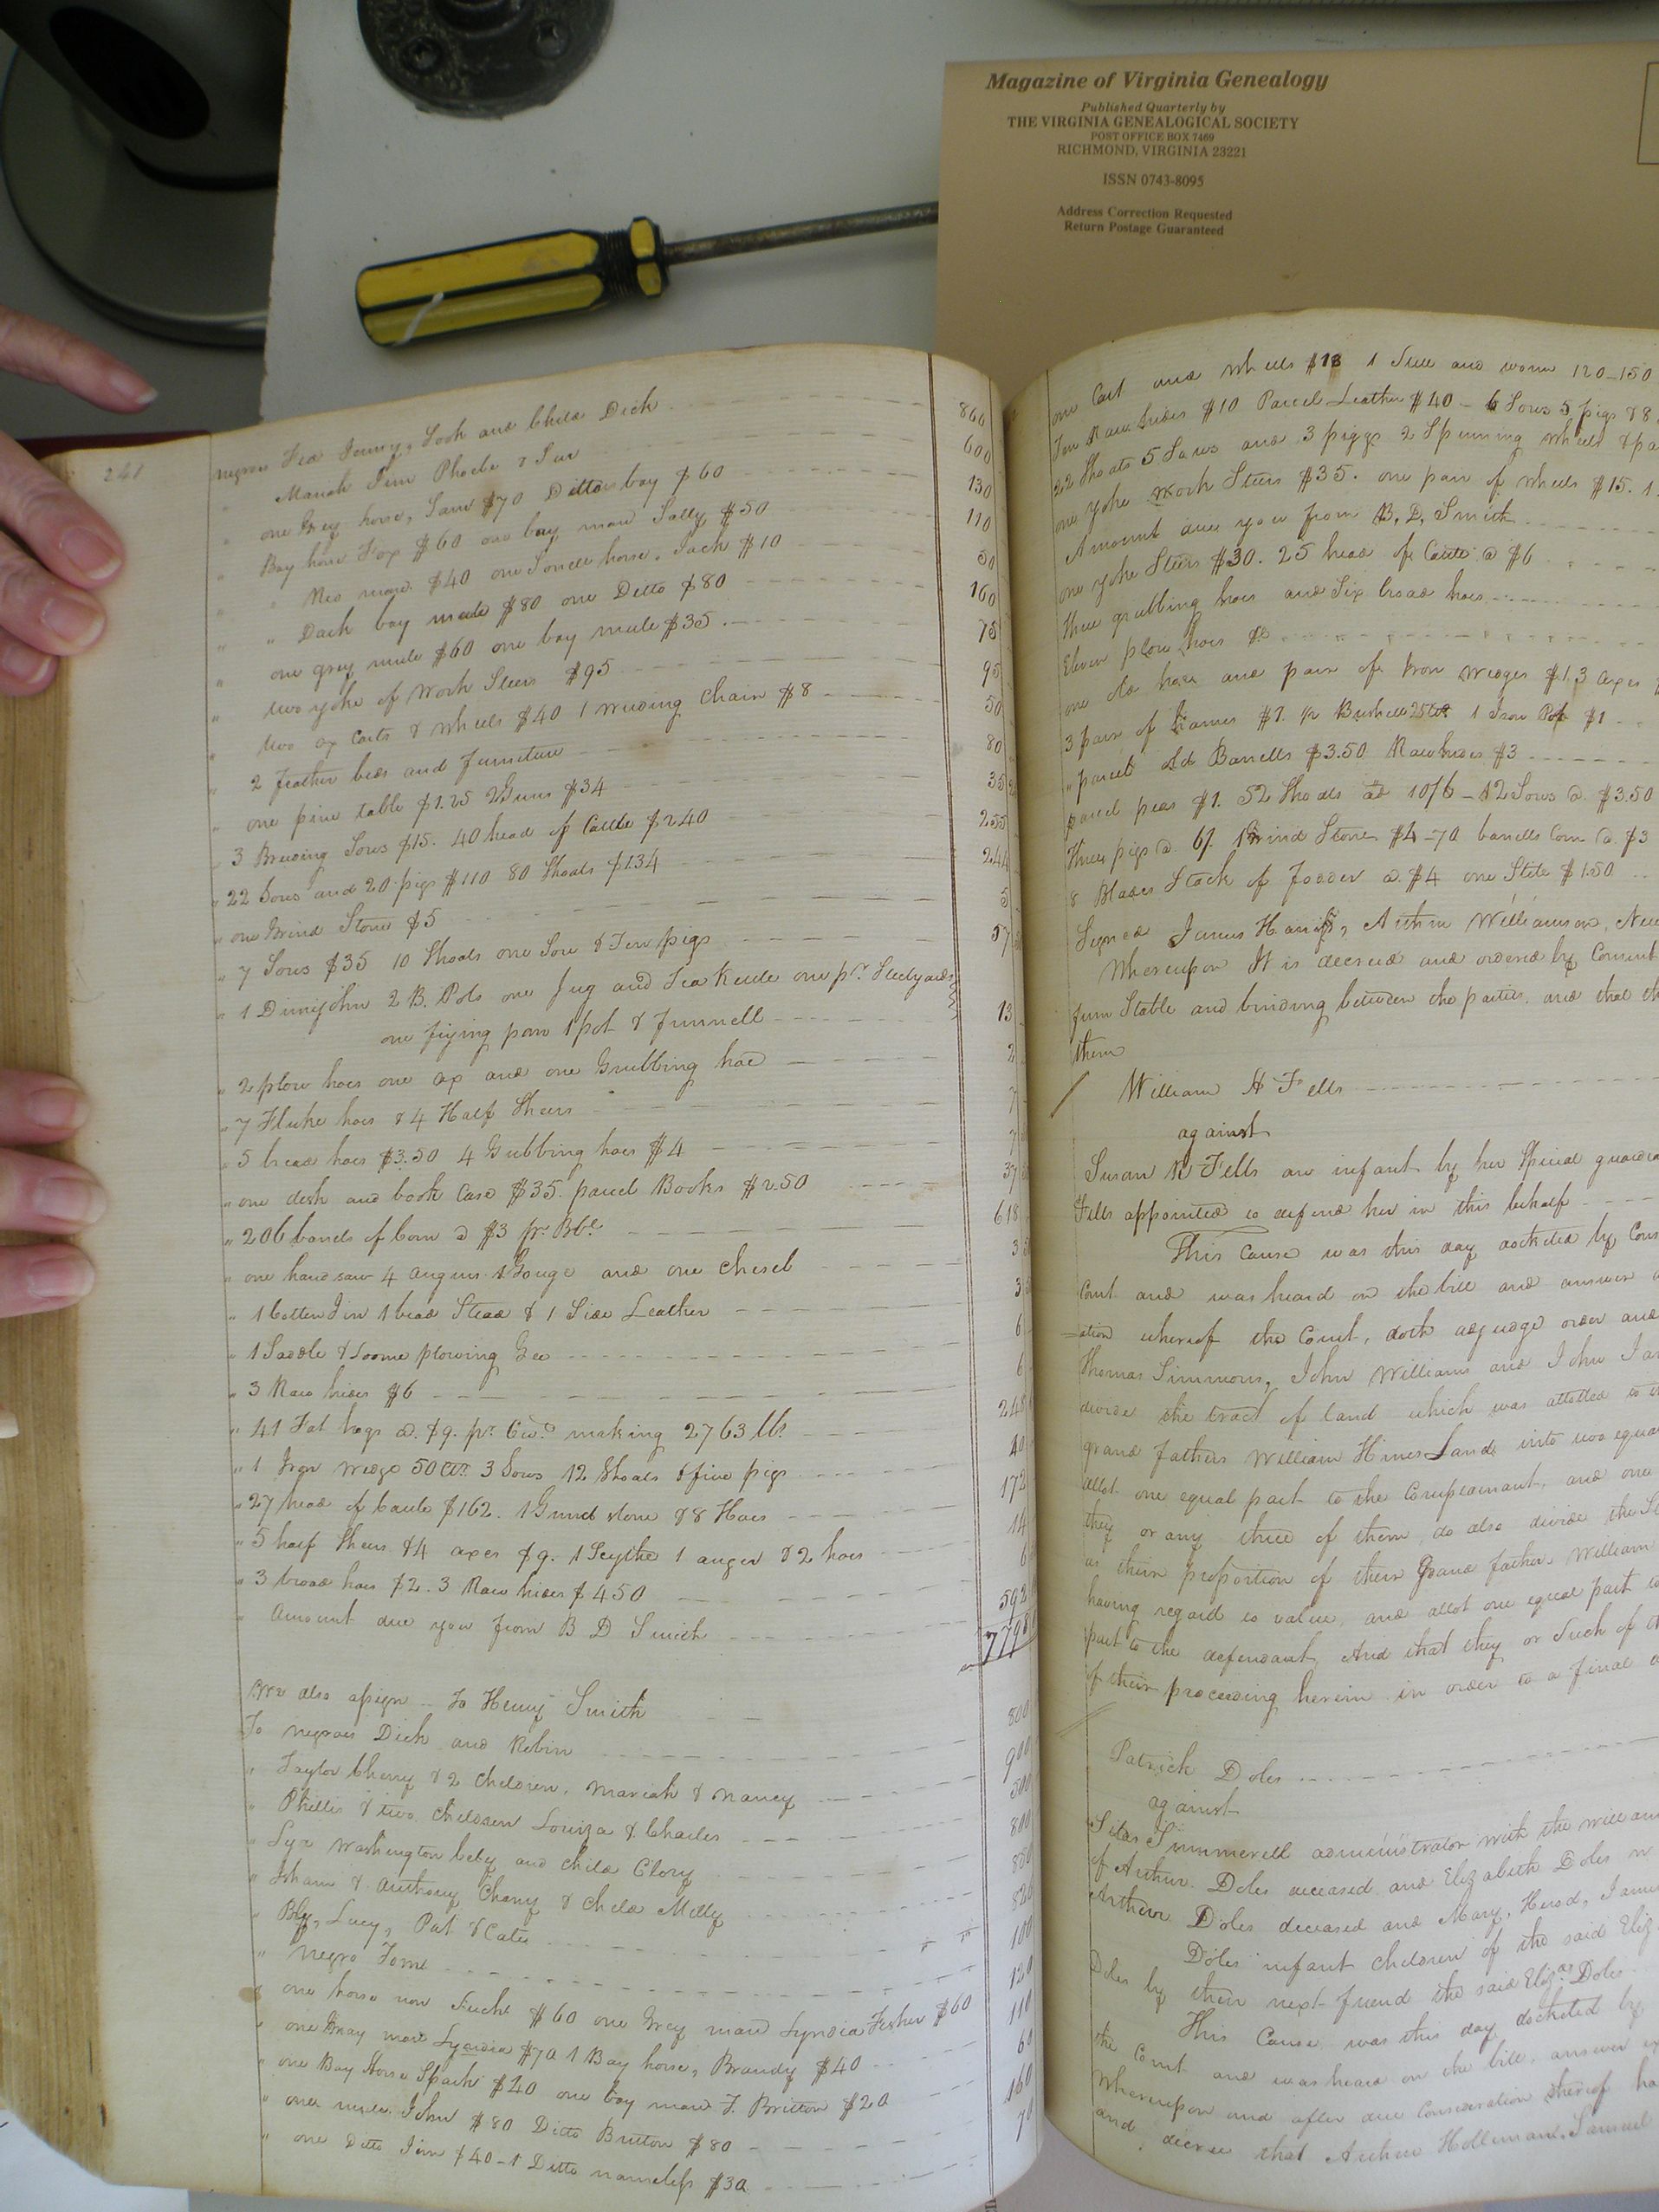 Magazine of Virginia Genealogy
Published Quarterly by
THE VIRGINIA GENEALOGICAL SOCIETY
POST OFFICE BOX 7469
RICHMOND, VIRGINIA 23221
ISSN 0743-8095
Address Correction Requested
Return Postage Guaranteed
241
negroes Jenny, and Child Dick 860
" Mariah Jim Phoebe & 600
" one Grey horse, Sam $70 Ditto bay $60 130
" Bay horse Fox $60 one bay mare Sally $50 110
" " mare $40 one Sorrell horse, Jack $10 50
" " Dark bay mule $80 one Ditto $80 160
" one grey mule $60 one bay mule $35 75
" two yoke of Work Steers $95 95
" two ox Carts & wheels $40 1 Chain $8 50
" 2 feather beds and furniture 80
" one pine table $1.25 2 Guns $34 35
" 3 Breeding Sows $15. 40 head of Cattle $240 255
" 22 Sows and 20 pigs $110 80 Shoats $134 244
" one Grind Stone $5 5
" 7 Sows $35 10 Shoats one Sow & Ten pigs 57
" 1 Dimijohn 2 B. Pots one Jug and Tea Kettle one pr. Steelyards
one frying pan 1 pot & Funnell 13
" 2 plow hoes one ax and one Grubbing hoe 2
" 7 Fluke hoes & 4 Half Shears 7
" 5 broad hoes $3.50 4 Grubbing hoes $4 7
" one desk and book Case $35. parcel Books $2.50 37
" 206 barrels of Corn @ $3 pr. Bbl. 618
" one hand saw 4 augurs 1 Gouge and one Chisel 3
" 1 Cotten Jin 1 bead Stead & 1 Side Leather 3
" 1 Saddle & Some plowing Gee 6
" 3 Raw hides $6 6
" 41 Fat hogs @ $9. pr. Cwt. making 2763 lbs. 248
" 1 Iron wedge 50 Cts. 3 Sows 12 Shoats & five pigs 40
" 27 head of Cattle $162. 1 Grind stone & 8 Hoes 172
" 5 half Shears & 4 axes $9. 1 Scythe 1 auger & 2 hoes 14
" 3 broad hoes $2. 3 Raw hides $4.50 6
" Amount due you from B D Smith 592
7798
We also assign To Henry Smith
To negroes Dick and Robin 800
" Taylor Cherry & 2 Children, Mariah & Nancy 900
" Phillis & two Children Louiza & Charles 500
" Washington and Child Clory 800
" & Anthony Chany & Child Milly 800
" Lucy, Pat & Cate 820
" Negro Tom 100
" one horse $60 one Grey mare Lyndia Fisher $60 120
" one Gray mare Lyndia $70 1 Bay horse, Brandy $40 110
" one Bay Horse Spark $40 one bay mare F. Britton $20 60
" one mule John $80 Ditto Britton $80 160
" one Ditto Jim $40 - 1 Ditto nameless $30 70
one Cart and wheels $18 1 Still and worm 120 - 150
Raw hides $10 Parcel Leather $40 - 6 Sows 5 pigs & 8
22 Shoats 5 Sows and 3 piggs 2 Spinning wheels &
one yoke work Steers $35. one pair of wheels $15. 1
Amount due you from B, D, Smith
one yoke Steers $30. 25 head of Cattle @ $6
three grubbing hoes and Six broad hoes
Eleven plow hoes
one do hoes and pair of Iron wedges $1. 3 axes
3 pair of Hames $1. Bushell 25 Cts 1 Iron Pot $1
" parcel old Barrells $3.50 Raw hides $3
parcel peas $1. 52 Shoats at 10/6 - 12 Sows @ $3.50
three pigs @ 6/. 1 Grind Stone $4 - 70 barrells Corn @ $3
8 Blades Stack of Fodder @ $4 one $1.50
Signed James Williamson,
Whereupon It is decreed and ordered by Consent
firm Stable and binding between the parties, and that
them
William H Fells
against
Susan Fells an infant by her Special
Fells appointed to defend her in this behalf
This Cause was this day docketed by
Court and was heard on the bill and answer
-ation whereof the Court, doth adjudge order and
Thomas Simmons, John Williams and John
divide the tract of land which was allotted to
grand fathers William Hines Lands into two equal
allot one equal part to the Complainant, and one
they or any three of them, do also divide the
as their proportion of their Grand father William
having regard to value, and allot one equal part
part to the defendant, And that they or Such of
of their proceeding herein in order to a final
Patrick Doles
against
Silas Summerell administrator with the will
of Arthur Doles deceased and Elizabeth Doles
Arthur Doles deceased and Mary,
Doles infant Children of the said
Doles by their next friend the said Doles
This Cause was this day docketed by
the Court and was heard on the bill, answer
Whereupon and after due Consideration thereof
and decree that Holleman, Samuel